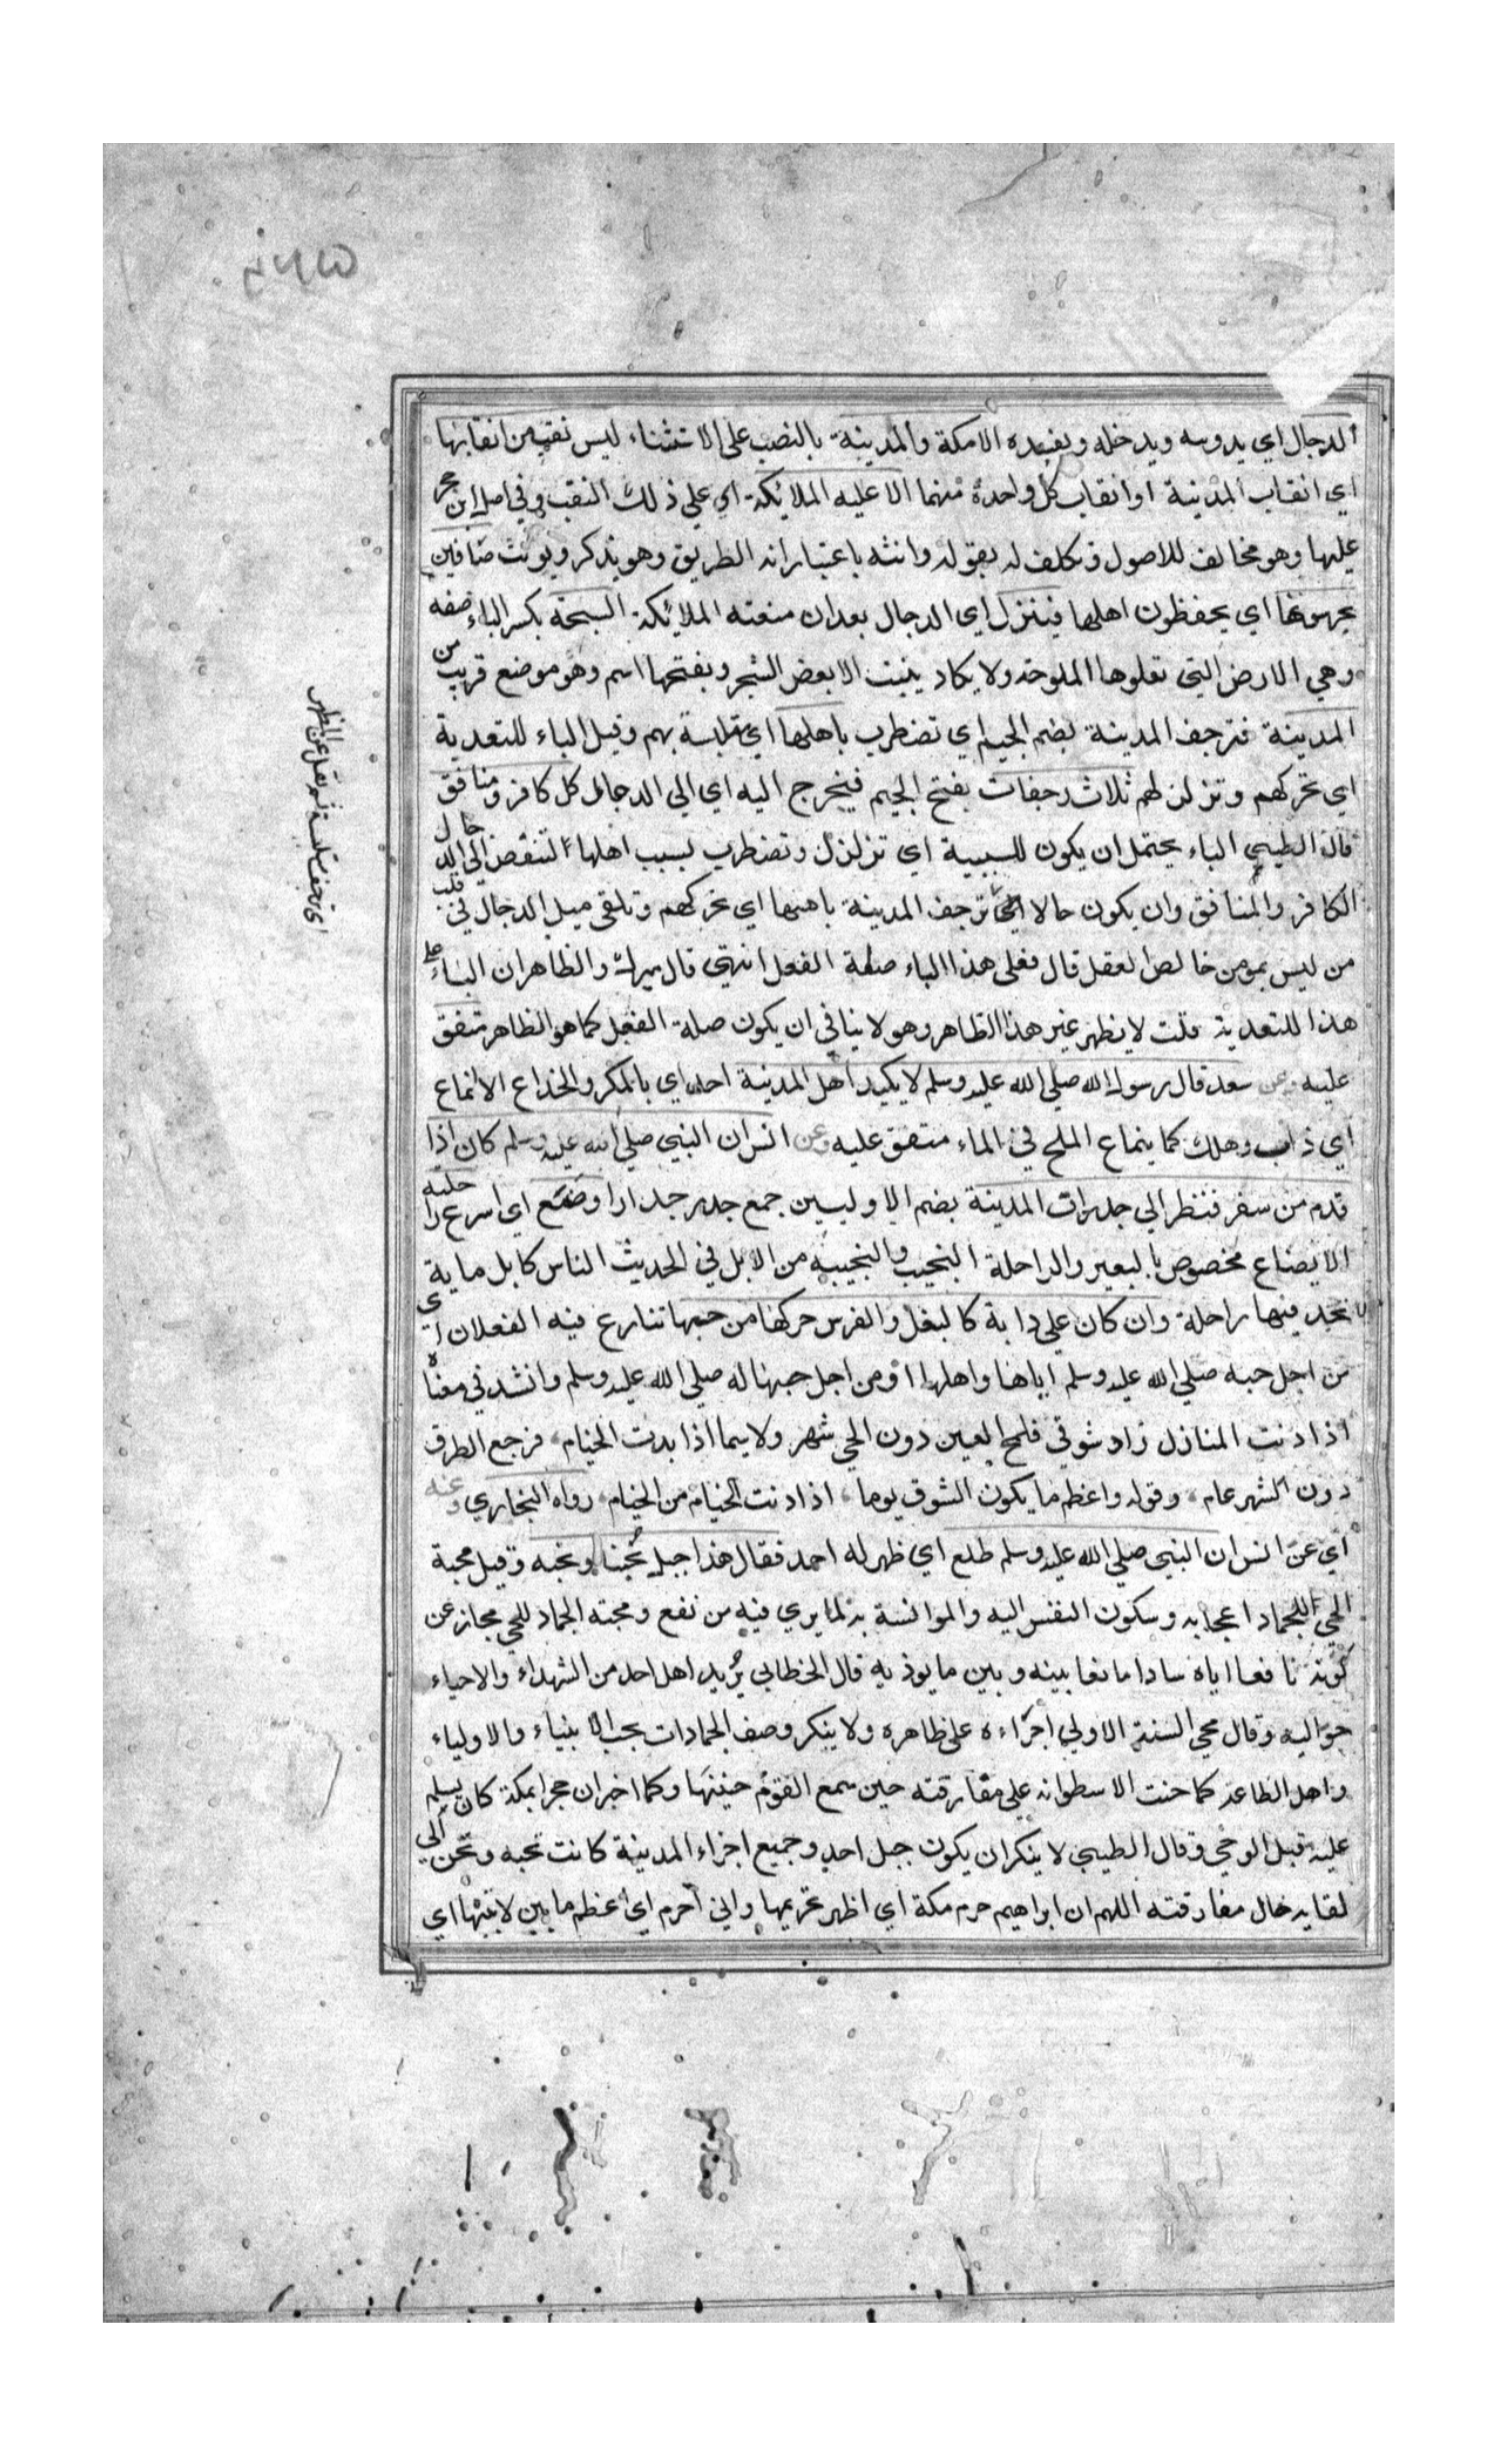 الدجال اي يدوسه ويدخله ويفسده الا مكة والمدينة بالنصب على الاستثناء ليس نقب من انقابها
اي انقاب المدينة او انقاب كل واحدة منهما الا عليه الملائكة اي على ذلك النقب وفي اصل ابن حجر
عليها وهو مخالف للاصول فتكلف له بقوله وانثه باعتبار انه الطريق وهو يذكر ويونث صافين
يحرسونها اي يحفظون اهلها فينزل اي الدجال بعد ان منعته الملائكة السبخة بكسر الباء صفه
وهي الارض التي تعلوها الملوحة ولا يكاد ينبت الا بعض الشجر وبفتحها اسم وهو موضع قريب من
المدينة فترجف المدينة بضم الجيم اي تضطرب باهلها اي متلبسة بهم وقيل الباء للتعدية
اي تحركهم وتزلزلهم ثلاث رجفات بفتح الجيم فيخرج اليه اي الى الدجال كل كافر ومنافق
قال الطيبي الباء يحتمل ان يكون للسببية اي تزلزل وتضطرب بسبب اهلها لتنفض الى الدجال
الكافر والمنافق وان يكون حالا اي ترجف المدينة باهلها اي تحركهم وتلقي ميل الدجال في قلب
من ليس بمومن خالص العقل قال فعلى هذا الباء صلة الفعل انتهى قال ميرك والظاهر ان الباء على
هذا للتعدية قلت لا يظهر غير هذا الظاهر وهو لا ينافي ان يكون صلة الفعل كما هو الظاهر متفق
عليه وعن سعد قال رسول الله صلى الله عليه وسلم لا يكيد اهل المدينة احد اي بالمكر والخداع الا انماع
اي ذاب وهلك كما ينماع الملح في الماء متفق عليه وعن انس ان النبي صلى الله عليه وسلم كان اذا
قدم من سفر فنظر الى جدرات المدينة بضم الاوليين جمع جدر جدارا اوضع اي اسرع راحلته
الايضاع مخصوص بالبعير والراحلة النجيب والنجيبه من الابل في الحديث الناس كابل ماية
لا تجد فيها راحلة وان كان على دابة كالبغل والفرس حركها من حبها تنازع فيه الفعلان اي
من اجل حبه صلى الله عليه وسلم اياها واهلها او من اجل حبها له صلى الله عليه وسلم وانشد في معناه
اذا دنت المنازل زاد شوقي فلمح العين دون الحي شهر ولا سيما اذا بدت الخيام، فرجع الطرف
دون الشهر عام، وقوله واعظم ما يكون الشوق يوما، اذا دنت الخيام من الخيام، رواه البخاري وعنه
اي عن انس ان النبي صلى الله عليه وسلم طلع اي ظهر له احمد فقال هذا جبل يحبنا ونحبه وقيل محبة
الحي للجماد اعجابه وسكون النفس اليه والموانسة به لما يرى فيه من نفع ومحبته الجماد للحي مجاز عن
كونه نافعا اياه سادا مانعا بينه وبين ما يوذيه قال الخطابي يريد اهل احد من الشهداء والاحياء
حواليه وقال محي السنة الاولى اجراءه على ظاهره ولا ينكر وصف الجمادات بحب الانبياء والاولياء
واهل الطاعة كما حنت الاسطوانه على مفارقته حين سمع القوم حنينها وكما اخبر ان حجرا بمكة كان يسلم
عليه قبل الوحي وقال الطيبي لا ينكر ان يكون جبل احد وجميع اجزاء المدينة كانت تحبه وتحن الى
لقايه حال مفارقته اللهم ان ابراهيم حرم مكة اي اظهر تحريمها واني احرم اي اعظم ما بين لابتيها اي